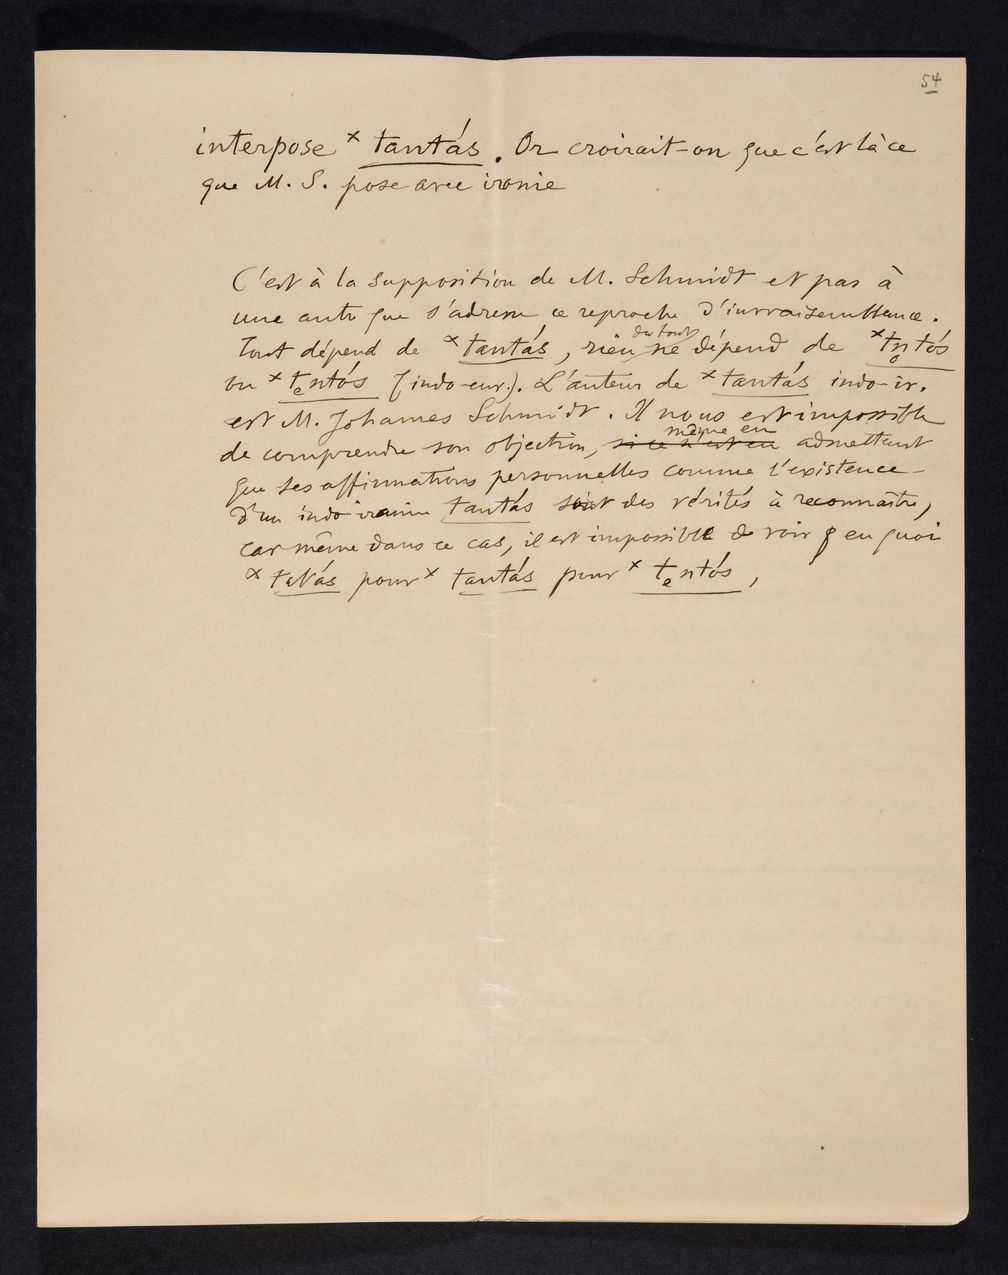 54
interpose × tantás. Or croirait-on que c'est là ce
que M. S. pose avec ironie
C'est à la supposition de M. Schmidt et pas à
une autre que s'adresse ce reproche d'invraisemblance.
Tout dépend de × tantás, rien du tout ne dépend de × tn̥tós
ou × tₑntós (indo-eur.). L'auteur de × tantás indo-ir.
est M. Johannes Schmidt. Il nous est impossible
de comprendre son objection, si ce n'est en même en admettant
que ses affirmations personnelles comme l'existence
d'un indo-iranien tantás soit des vérités à reconnaître,
car même dans ce cas, il est impossible de voir q en quoi
× tatás pour × tantás pour × tₑntós,